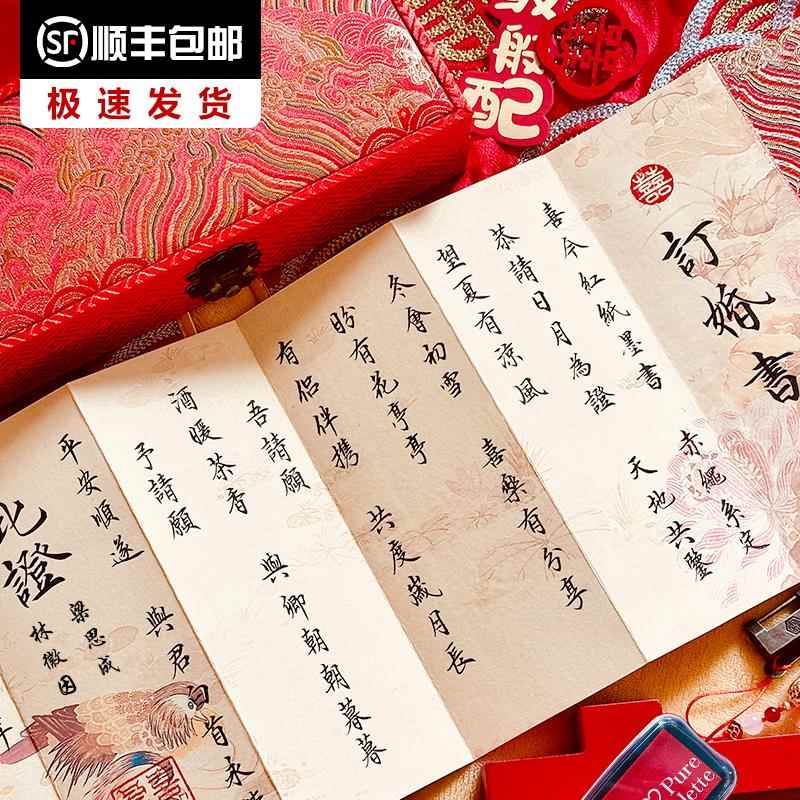 SF 顺丰包邮
极速发货
般配
囍
訂婚書
喜今紅紙墨書
赤繩系定
恭請日月為證
天地共鑒
望夏有涼風
喜樂有分享
冬會初雪
盼有花亭亭
共度歲月長
有侶伴携
吾請願
與卿朝朝暮暮
酒暖茶香
予請願
平安順遂
與君白首永
此證
梁思成
林徽因
年
Pure
lette